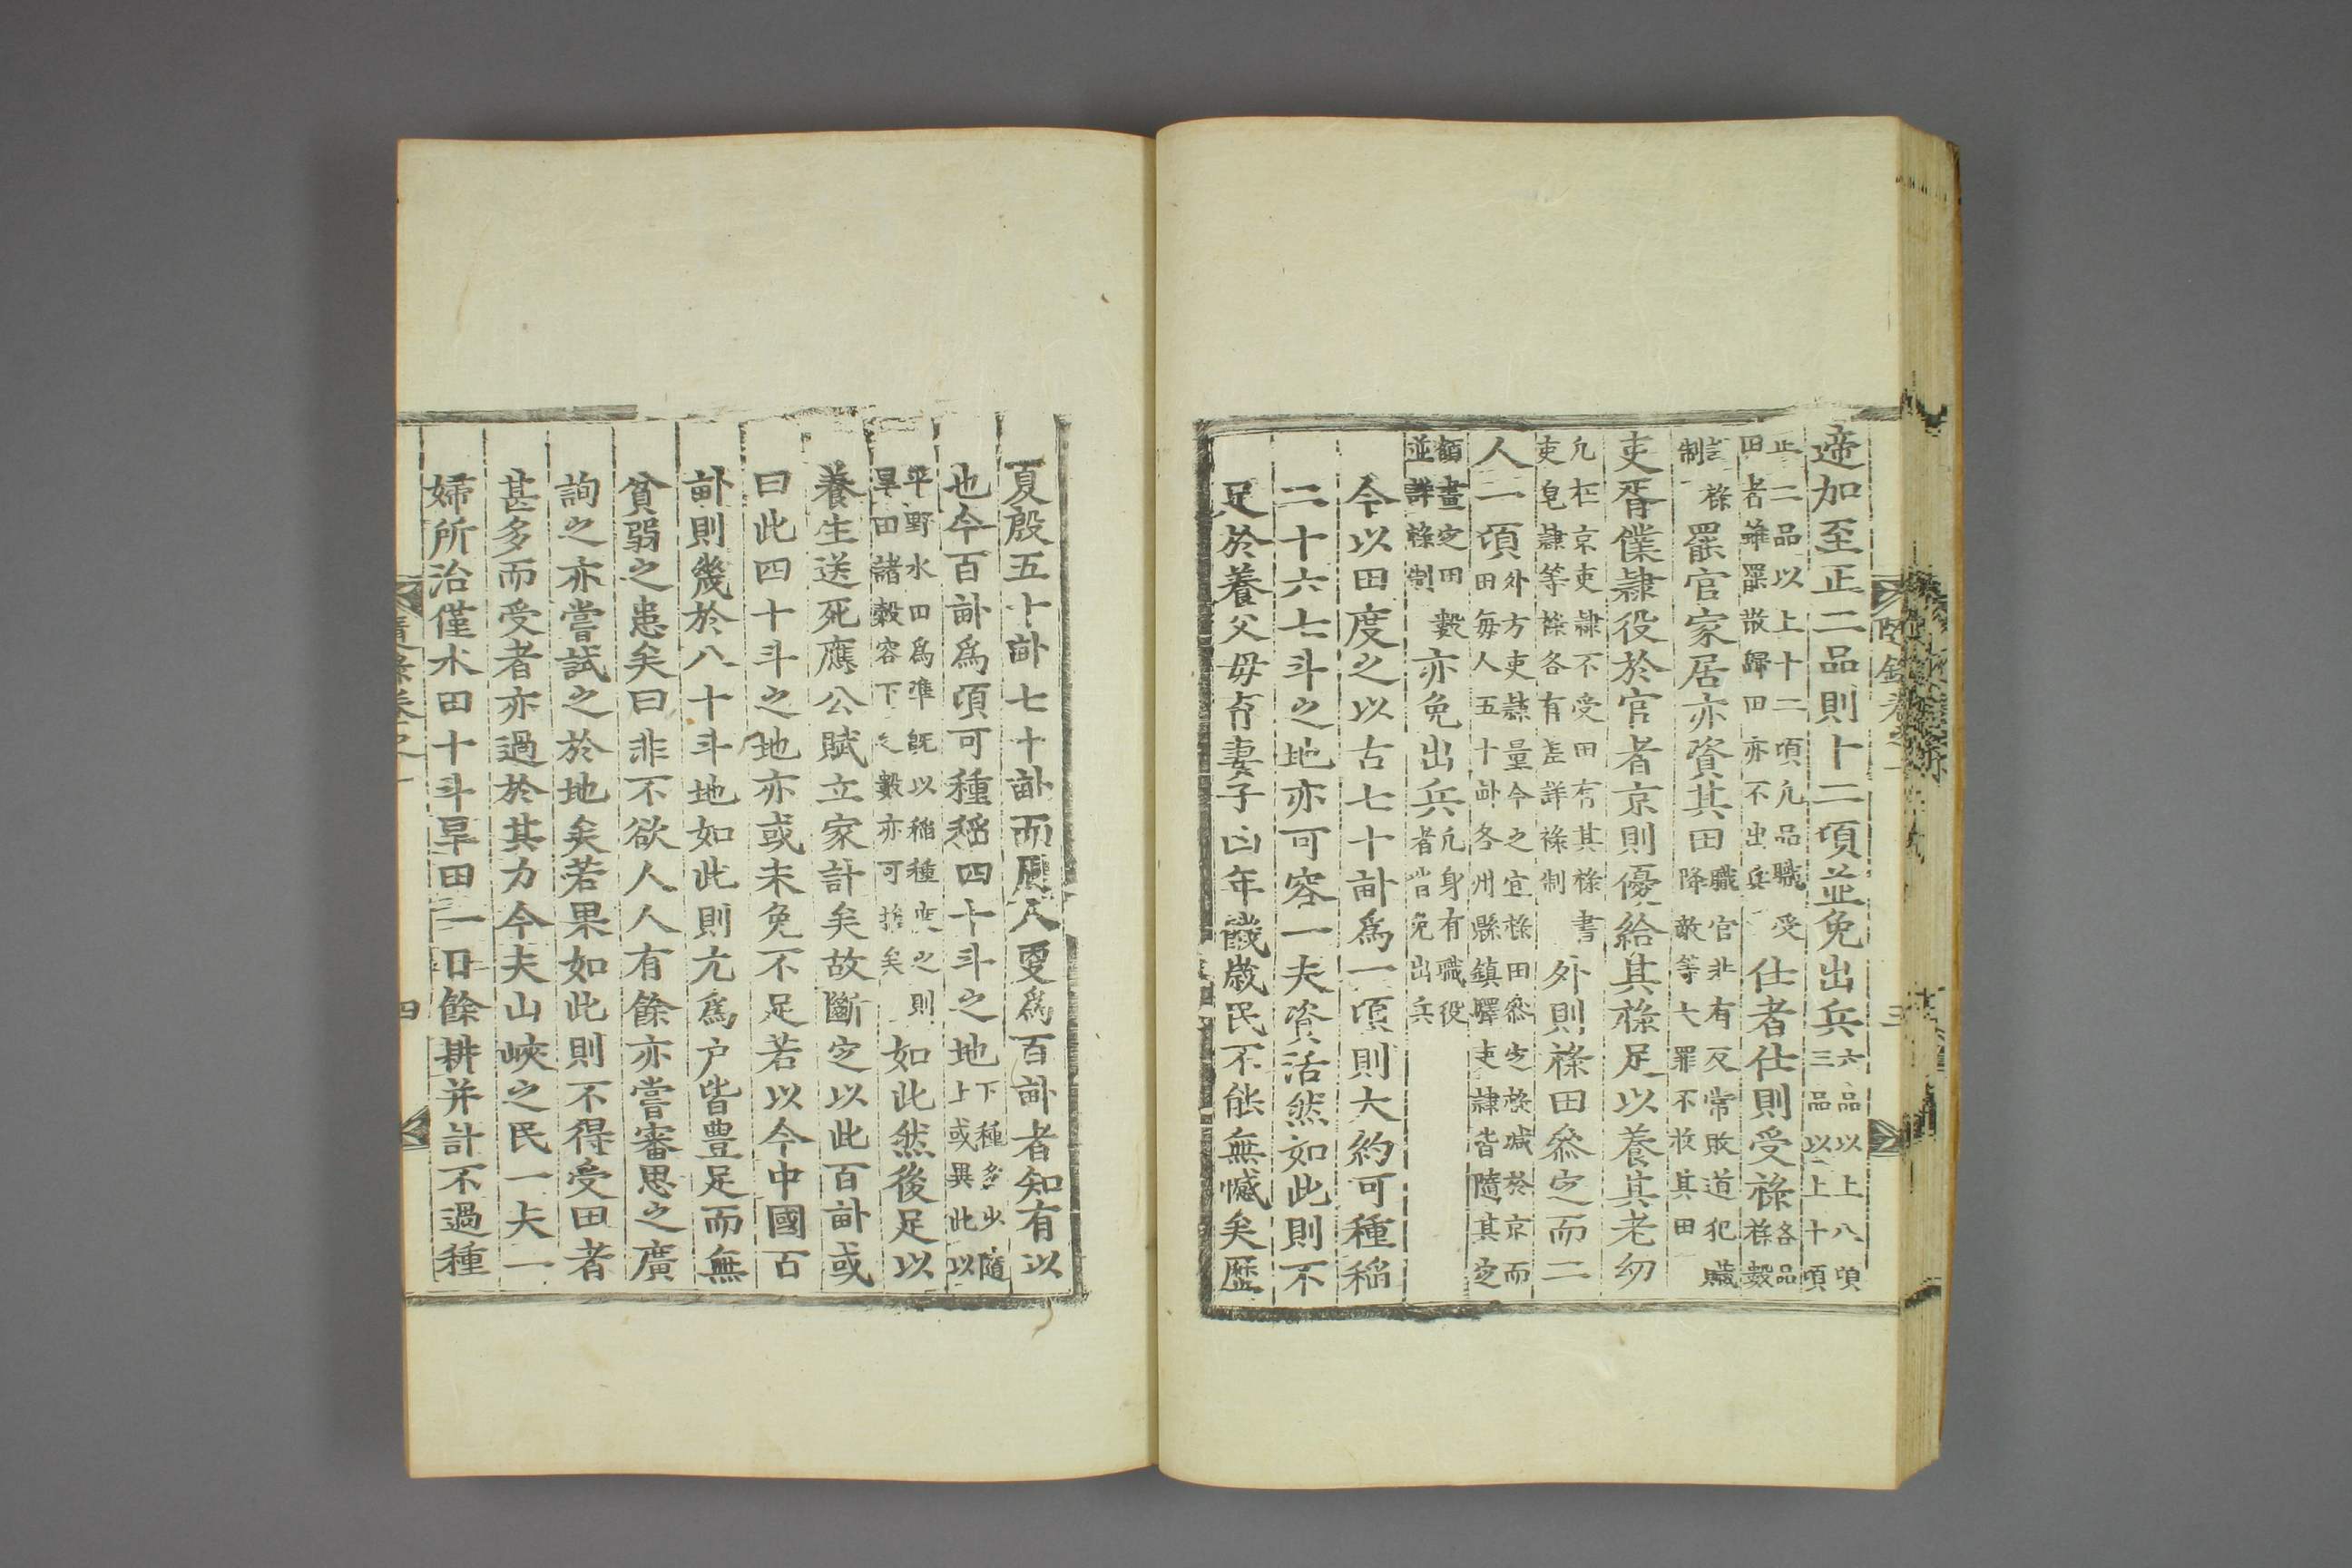 遆加至正二品則十二頃並免出兵六品以上八頃三品以上十頃
正二品以上十二頃凡品職受田者雖罷散歸田亦不出兵仕者仕則受祿各品祿數
言祿制罷官家居亦資其田職官非有反常敗道犯贓降敵等大罪不收其田
吏胥僕隷役於官者京則優給其祿足以養其老幼
凡在京吏隷不受田有其祿書吏皂隷等祿各有差詳祿制外則祿田叅定而二
人一頃外方吏隷量今之宜祿田叅定祿减於京而田每人五十畒各州縣鎭驛吏隷皆隨其定
額畫定田數並詳祿制亦免出兵凡身有職役者皆免出兵
今以田度之以古七十畒爲一頃則大約可種稻
二十六七斗之地亦可容一夫資活然如此則不
足於養父母育妻子凶年饑歲民不能無憾矣歷
夏殷五十畒七十畒而周人更爲百畒者知有以
也今百畒爲頃可種稻四十斗之地下種多少隨上或異此以
平野水田爲準旣以稻種定之則旱田諸穀容下之數亦可推矣如此然後足以
養生送死應公賦立家計矣故斷定以此百畒或
曰此四十斗之地亦或未免不足若以今中國百
畒則幾於八十斗地如此則亢爲户皆豊足而無
貧弱之患矣曰非不欲人人有餘亦嘗審思之廣
詢之亦嘗試之於地矣若果如此則不得受田者
甚多而受者亦過於其力今夫山峽之民一夫一
婦所治僅水田十斗旱田一日餘耕并計不過種